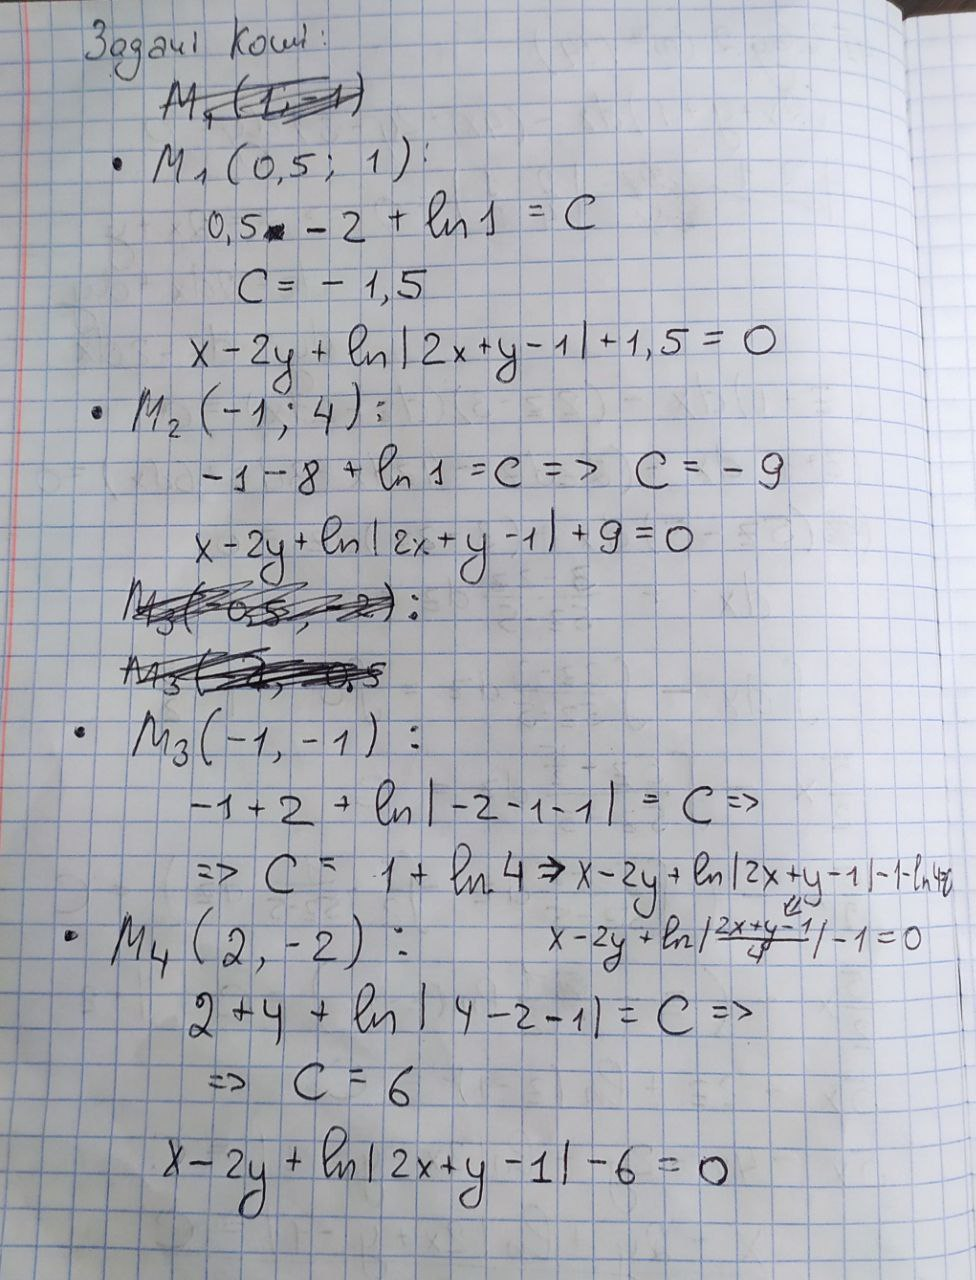 Задачі Коші:
M₁(1, -1)
• M₁(0,5; 1):
0,5 - 2 + ln 1 = C
C = - 1,5
x - 2y + ln|2x+y-1| + 1,5 = 0
• M₂(-1; 4):
-1 - 8 + ln 1 = C => C = - 9
x - 2y + ln|2x+y-1| + 9 = 0
M₃(-0,5, -2):
• M₃(-1, -1):
-1 + 2 + ln|-2-1-1| = C =>
=> C = 1 + ln 4 => x - 2y + ln|2x+y-1| -1-ln4
x - 2y + ln|(2x+y-1)/4| - 1 = 0
• M₄(2, -2):
2 + 4 + ln|4-2-1| = C =>
=> C = 6
x - 2y + ln|2x+y-1| - 6 = 0